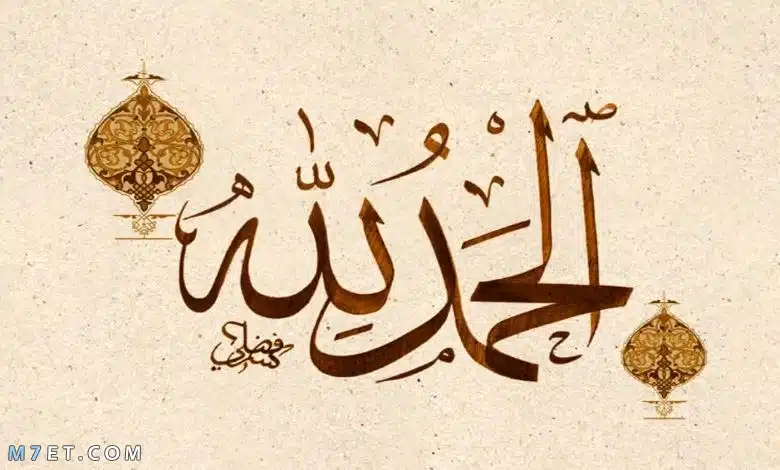 الحمد لله
M7ET.COM